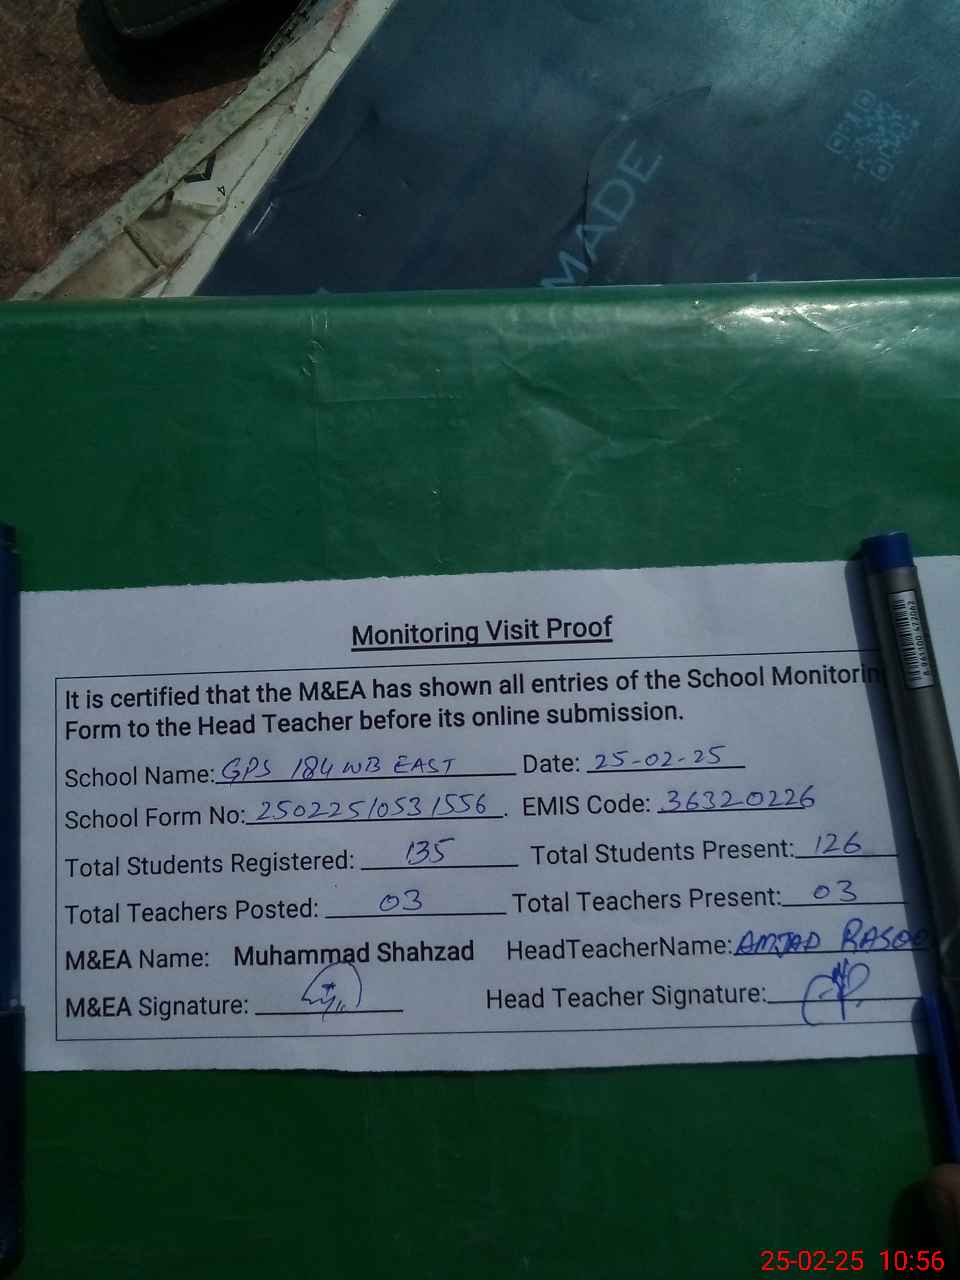 4
MADE
Monitoring Visit Proof
It is certified that the M&EA has shown all entries of the School Monitorin
Form to the Head Teacher before its online submission.
School Name: GPS 184 WB EAST Date: 25-02-25
School Form No: 25022510531556. EMIS Code: 36320226
Total Students Registered: 135 Total Students Present: 126
Total Teachers Posted: 03 Total Teachers Present: 03
M&EA Name: Muhammad Shahzad HeadTeacherName: AMJAD RASOO
M&EA Signature: Head Teacher Signature:
25-02-25 10:56